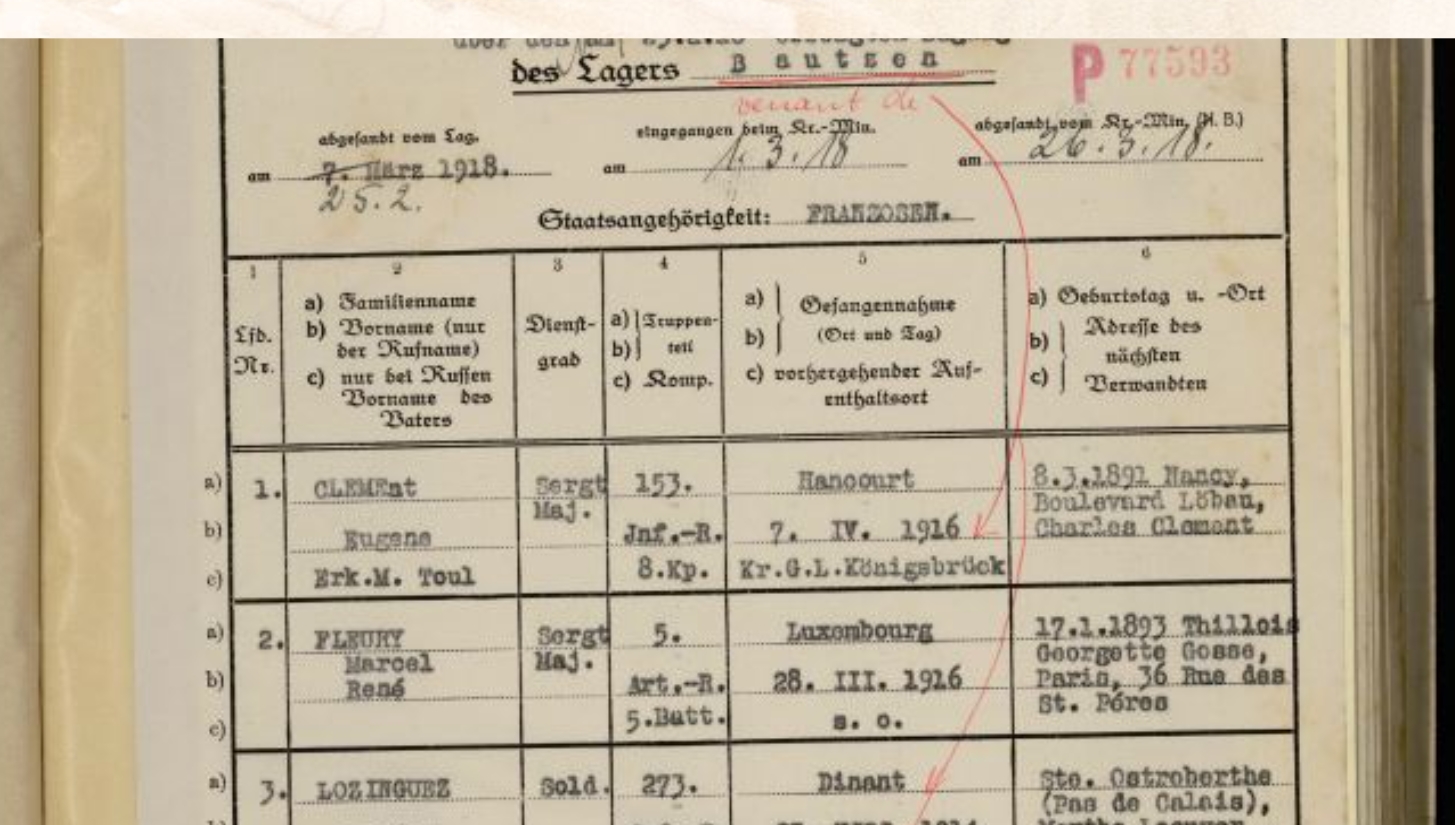 des Lagers Bautzen
P 77593
venant de
abgesandt vom Lag.
eingegangen beim Kr.-Min.
abgesandt vom Kr.-Min. (N. B.)
am 7. März 1918.
am 1.3.18
am 26.3.18.
25.2.
Staatsangehörigkeit: FRANZOSEN.
1
2
3
4
5
6
Lfd.
Nr.
a) Familienname
b) Vorname (nur
der Rufname)
c) nur bei Russen
Vorname des
Vaters
Dienst-
grad
a) Truppen-
b) teil
c) Komp.
a) Gefangennahme
b) (Ort und Tag)
c) vorhergehender Auf-
enthaltsort
a) Geburtstag u. -Ort
b) Adresse des
nächsten
c) Verwandten
a)
b)
c)
1.
CLEMEnt
Eugene
Erk.M. Toul
Sergt
Maj.
153.
Jnf.-R.
8.Kp.
Hancourt
7. IV. 1916
Kr.G.L.Königsbrück
8.3.1891 Nancy,
Boulevard Löbau,
Charles Clement
a)
b)
c)
2.
FLEURY
Marcel
René
Sergt
Maj.
5.
Art.-R.
5.Batt.
Luxembourg
28. III. 1916
s. o.
17.1.1893 Thillois
Georgette Gosse,
Paris, 36 Rue des
St. Péres
a)
3.
LOZINGUEZ
Sold.
273.
Dinant
Ste. Ostroberthe
(Pas de Calais),